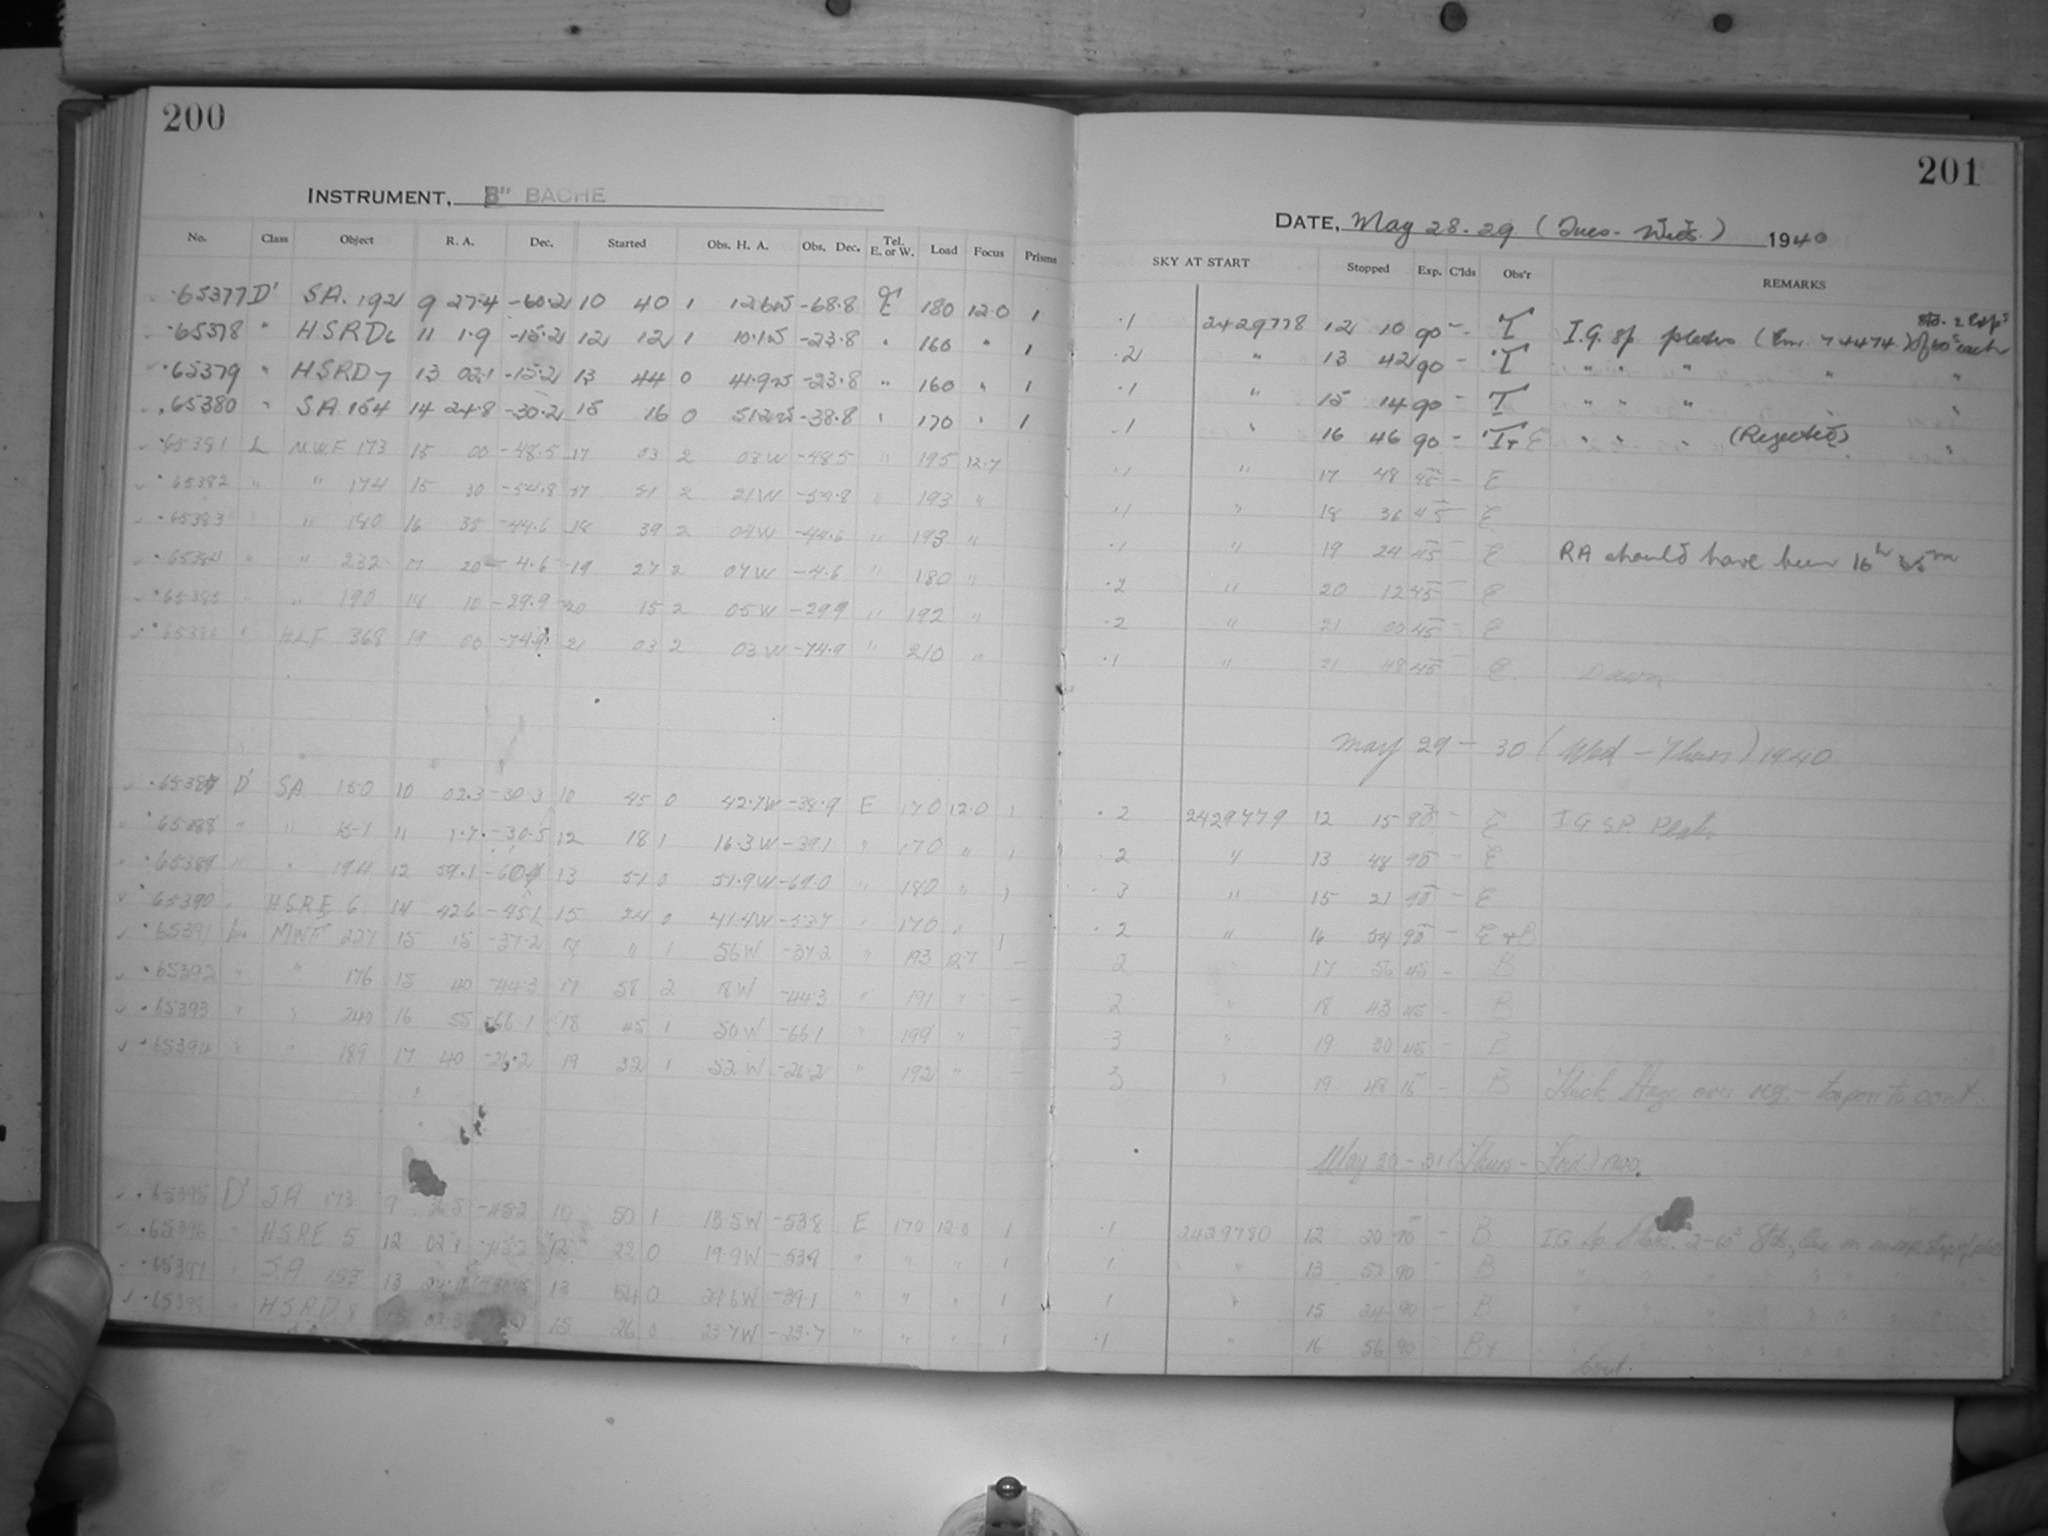 200
INSTRUMENT, 8" BACHE
No. Class Object R. A. Dec. Started Obs. H. A. Obs. Dec. Tel. E. or W. Load Focus Prisms
65377 D' S.A. 192 9 27.4 -60.2 10 40 1 12.6W -68.8 E 180 12.0 1
65378 " HSRD6 11 1.9 -15.2 12 12 1 10.1W -23.8 " 160 " 1
65379 " HSRD7 13 02.1 -15.2 13 44 0 41.9W -23.8 " 160 " 1
65380 " SA 154 14 24.8 -30.2 15 16 0 51.2W -38.8 " 170 " 1
65381 L MWF 173 15 00 -48.5 17 03 2 03W -48.5 " 195 12.7
65382 " " 174 15 30 -54.8 17 51 2 21W -54.8 " 193 "
65383 " 180 16 35 -44.6 18 39 2 04W -44.6 " 193 "
65384 " " 232 17 20 -4.6 19 27 2 07W -4.6 " 180 "
65385 " " 190 18 10 -29.9 20 15 2 05W -29.9 " 192 "
65386 " HLF 368 19 00 -74.9 21 03 2 03W -74.9 " 210 "
65387 D' SA 150 10 02.3 -30.3 10 45 0 42.7W -38.9 E 170 12.0 1
65388 " " 151 11 1.7 -30.5 12 18 1 16.3W -39.1 " 170 " 1
65389 " " 194 12 59.1 13 51 0 51.9W -69.0 " 180 " 1
65390 " HSRE 6 14 42.6 -45.1 15 24 0 41.4W -53.7 " 170 " 1
65391 L MWF 227 15 15 -37.2 17 11 1 56W -37.2 " 193 12.7 -
65392 " " 176 15 40 -44.3 17 58 2 18W -44.3 " 191 " -
65393 " " 240 16 55 -66.1 18 45 1 50W -66.1 " 199 " -
65394 " " 189 17 40 -26.2 19 32 1 52W -26.2 " 192 " -
65395 D' SA 173 9 -45.2 10 50 1 13.5W -53.8 E 170 12.0 1
65396 " HSRE 5 12 02.1 -45.2 12 22 0 19.9W " " " 1
65397 " S.A. 13 13 54 0 29.6W -39.1 " " " 1
65398 " HSRD 8 15 02.3 15 26 0 23.7W -23.7 " " " 1
201
DATE, May 28.29 (Tues.-Weds.) 1940
SKY AT START Stopped Exp. C'lds Obs'r REMARKS
.1 2429778 12 10 90 - T I.G. sp plates (Em. 74474.)
.2 " 13 42 90 - T " " " " "
.1 " 15 14 90 - T " " " " "
.1 " 16 46 90 - T+E " " " (Rejected) "
.1 " 17 48 45 - E
.1 " 18 36 45 - E
.1 " 19 24 45 - E RA should have been 16h 35m
.2 " 20 12 45 - E
.2 " 21 00 45 - E
.1 " 21 48 45 - E Dawn
May 29 - 30 (Wed - Thurs) 1940
.2 2429779 12 15 90 - E IG SP Plates
.2 " 13 48 90 - E
.3 " 15 21 90 - E
.2 " 16 54 90 - E+B
2 " 17 56 45 - B
2 " 18 43 45 - B
3 " 19 30 45 - B
3 " 19 48 16 - B Thick Haze over reg. - too poor to cont.
May 30 - 31 (Thurs - Frid.) 1940.
.1 2429780 12 20 90 - B IG sp. Plates.
1 " 13 52 90 - B
1 " 15 24 90 - B
.1 " 16 56 90 - B+
Cont.